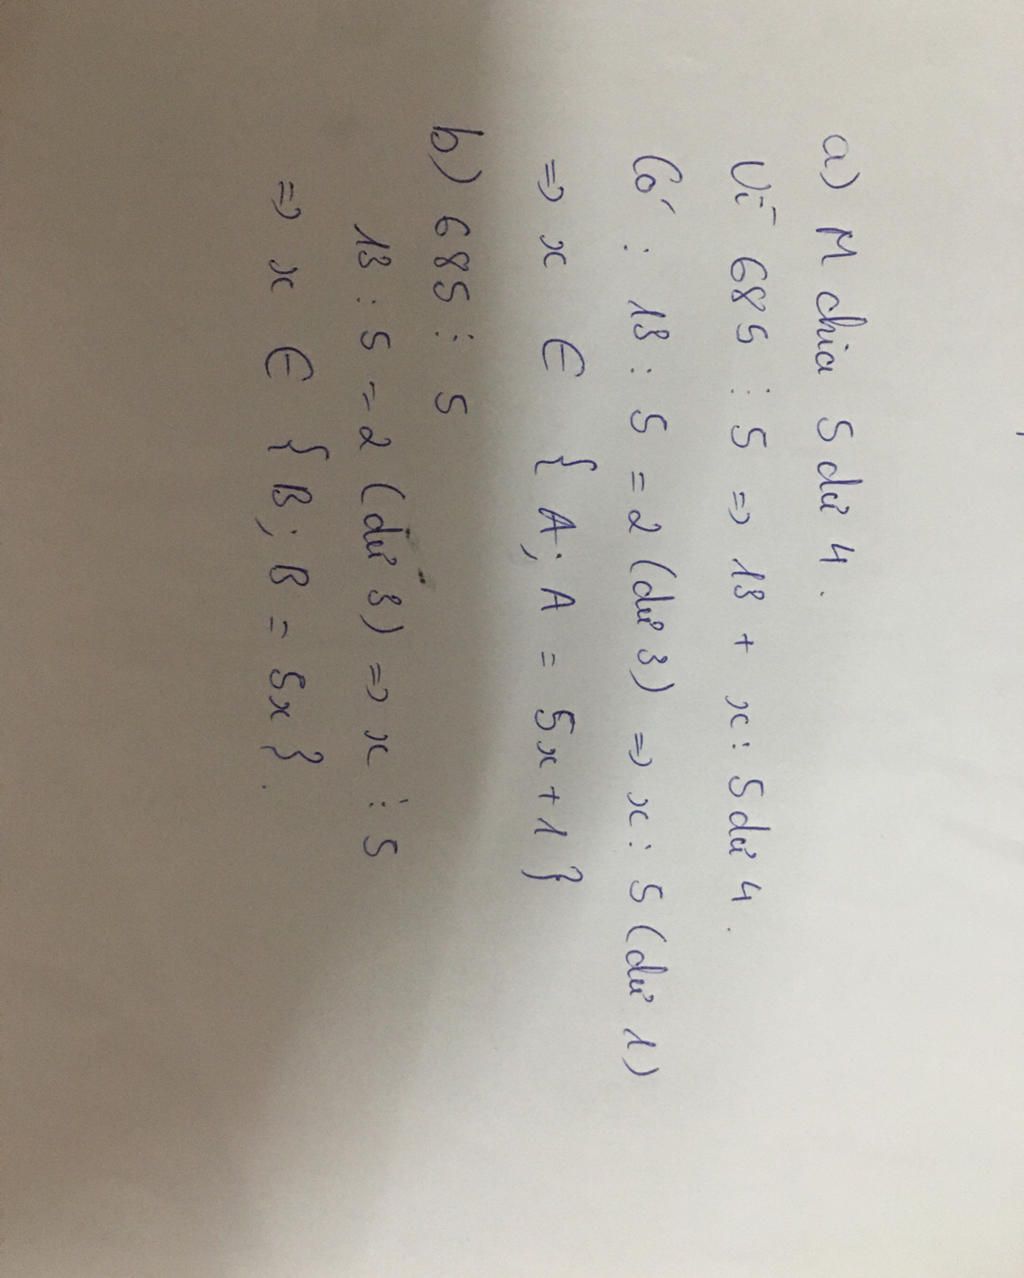 a) M chia 5 dư 4.
Vì 685 ⋮ 5 => 13 + x : 5 dư 4.
Có : 13 : 5 = 2 (dư 3) => x : 5 (dư 1)
=> x ∈ { A; A = 5x + 1 }
b) 685 ⋮ 5
13 : 5 = 2 (dư 3) => x ⋮ 5
=> x ∈ { B; B = 5x }.